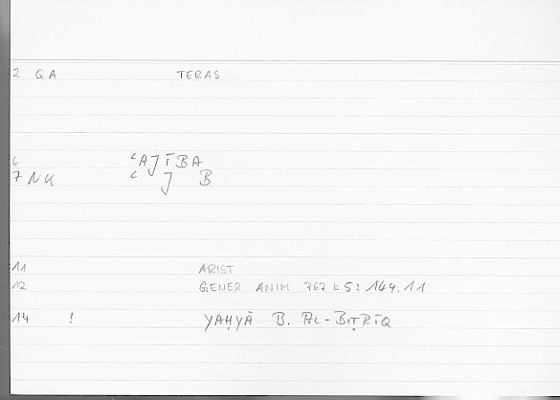 2 QA TERAS
6 ʿAJĪBA
7 NK ʿ J B
11 ARIST
12 GENER ANIM 767 b 5: 149.11
14 ! YAḤYĀ B. AL-BIṬRĪQ